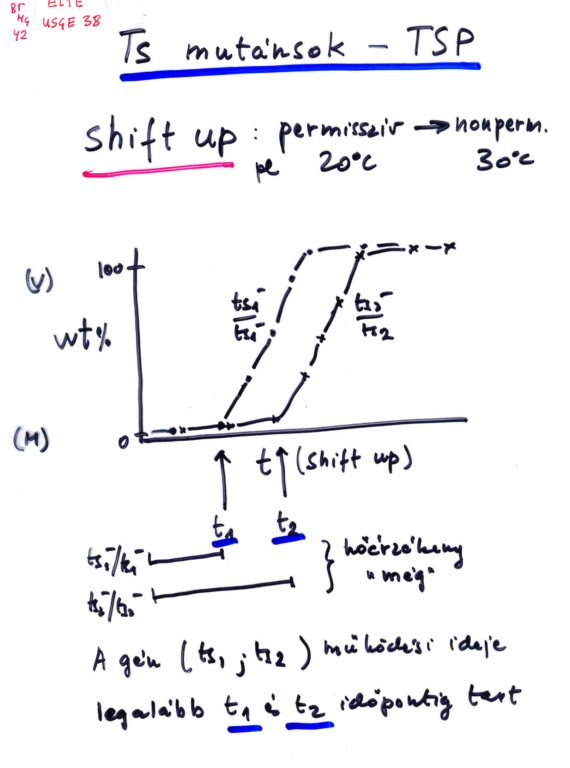 BF ELTE
M4 USGE 38
42
Ts mutánsok – TSP
shift up : permisszív → nonperm.
pl 20°C 30°C
(V) 100
ts1⁻/ts1⁻ ts2⁻/ts2
wt%
(M) 0
t (shift up)
t1 t2
ts1⁻/ts1⁻
ts2⁻/ts2⁻
hőérzékeny
"még"
A gén (ts1 ; ts2) működési ideje
legalább t1 és t2 időpontig tart